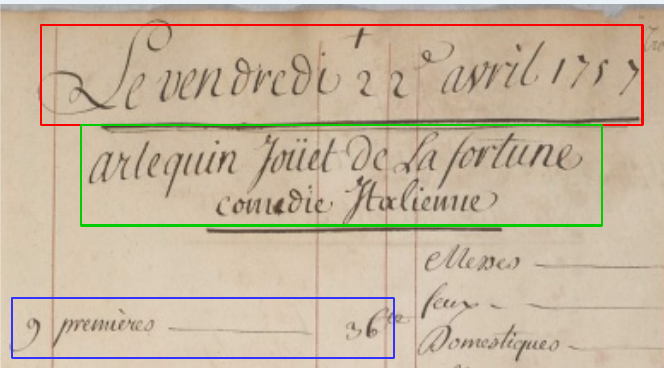 Le vendredi 22e avril 1757
arlequin Joüet de La fortune
comedie Italienne
Messes
feux
9 premières 36
Domestiques